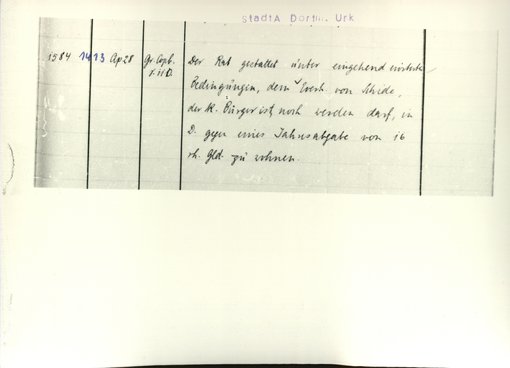 StadtA Dortm. Urk
1584 1413 Ap 28 Gr. Copb. Der Rat gestattet unter eingehend
Bedingungen, dem Everh. von Schide,
der k. Bürger ist, noch werden darf, in
D. gegen eines Jahresabgabe von 16
rh. Gld. zu wohnen.